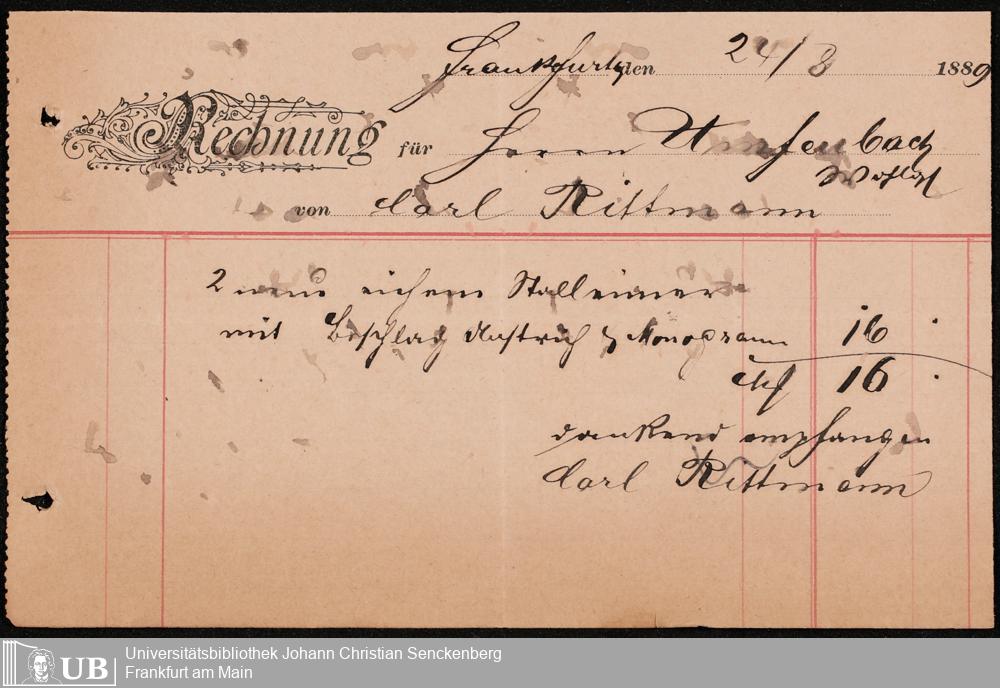 Frankfurt, den 24/8 1889
Rechnung für Herrn Umpfenbach
Wohlg
von Carl Rittmann
2 neue eichene Stalleimer
mit Beschlag Anstrich & Monogramm 16 .
Mk 16 .
dankend empfangen
Carl Rittmann
UB Universitätsbibliothek Johann Christian Senckenberg
Frankfurt am Main